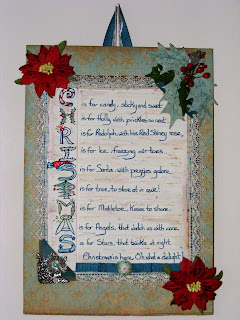 C is for candy, sticky and sweet
H is for Holly with prickles so neat
R is for Rudolph, with his Red Shiney nose,
I is for Ice, freezing our toes
S is for Santa with preggies galore
T is for tree, to stare at in awe!
M is for Mistletoe, Kisses to share
A is for Angels, that watch us with care
S is for Stars, that twinkle at night
Christmas is here, Oh what a delight